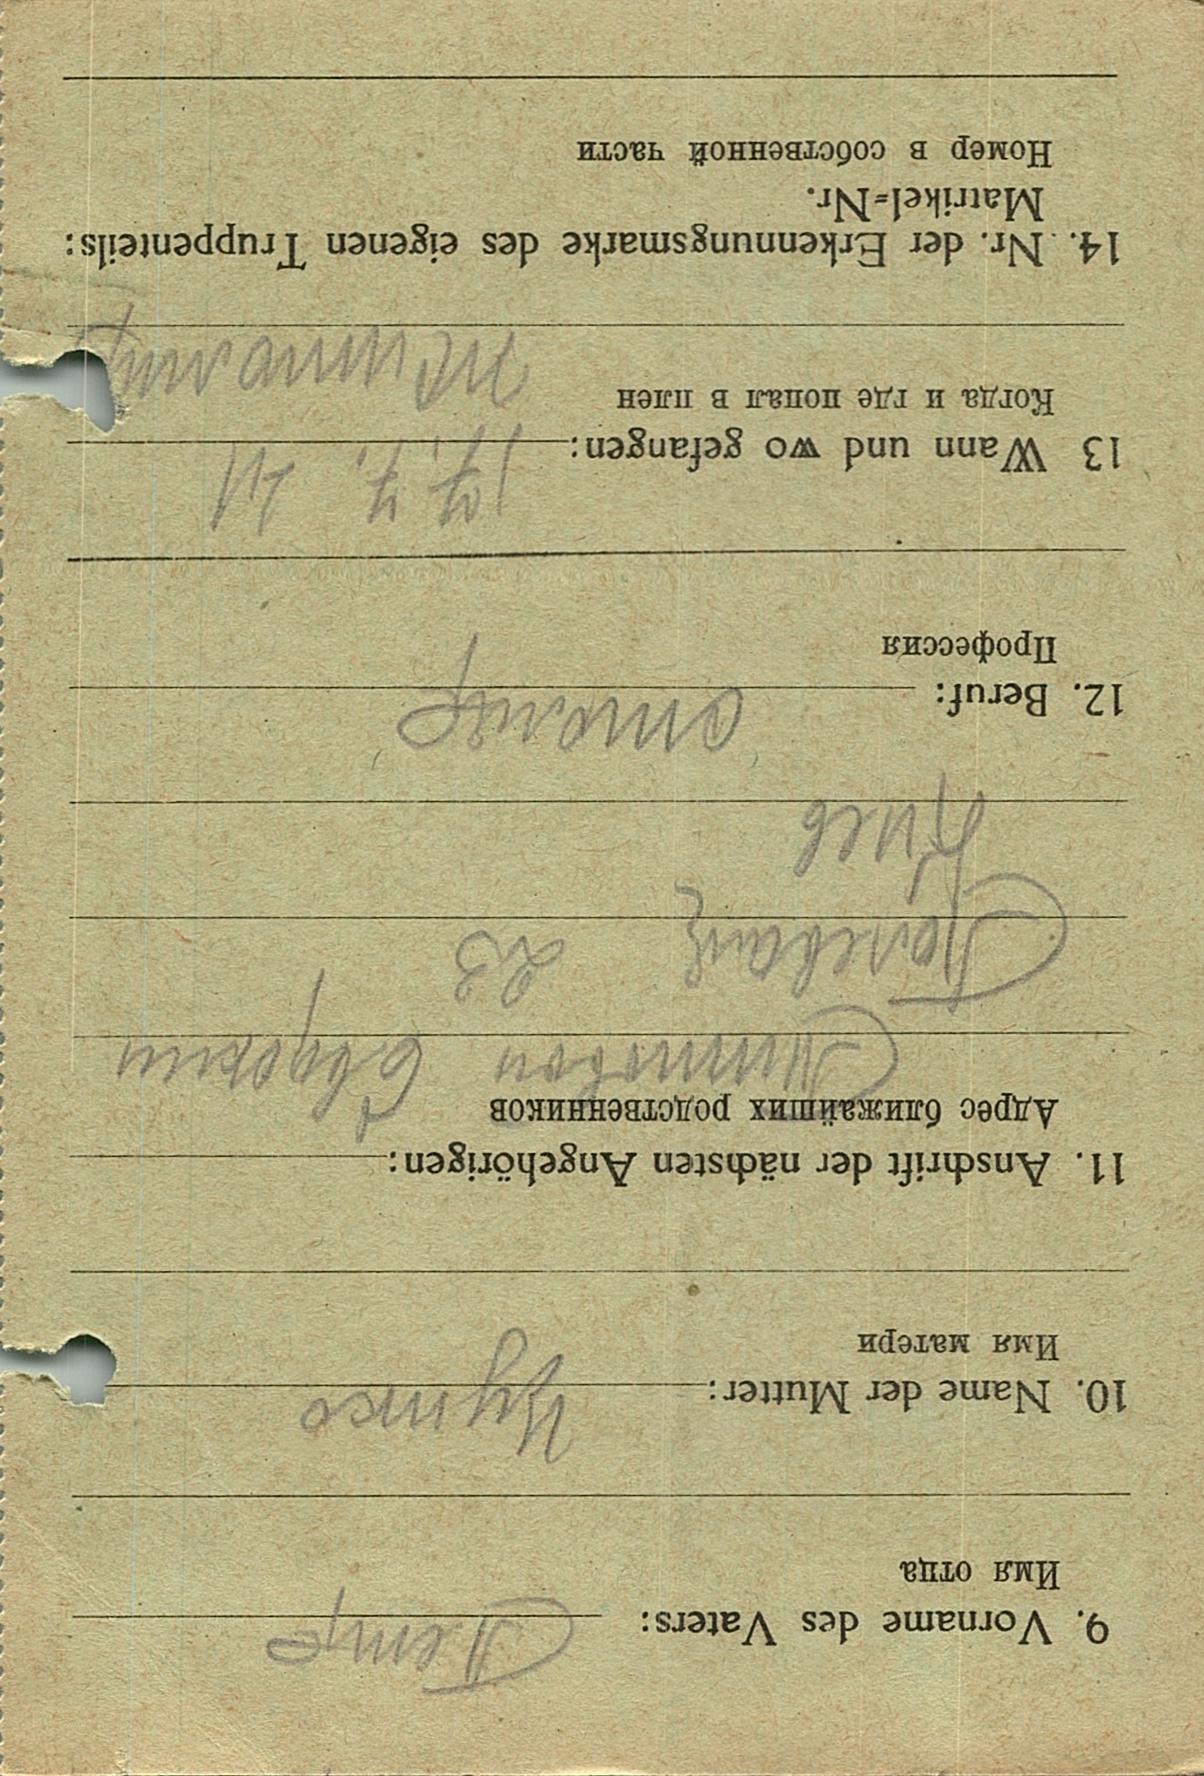 9. Vorname des Vaters:
Имя отца
Петр
10. Name der Mutter:
Имя матери
11. Anschrift der nächsten Angehörigen:
Адрес ближайших родственников
23
Киев
12. Beruf:
столяр
Профессия
13 Wann und wo gefangen:
17. 7. 41
Когда и где попал в плен
Житомир
14. Nr. der Erkennungsmarke des eigenen Truppenteils:
Matrikel-Nr.
Номер в собственной части